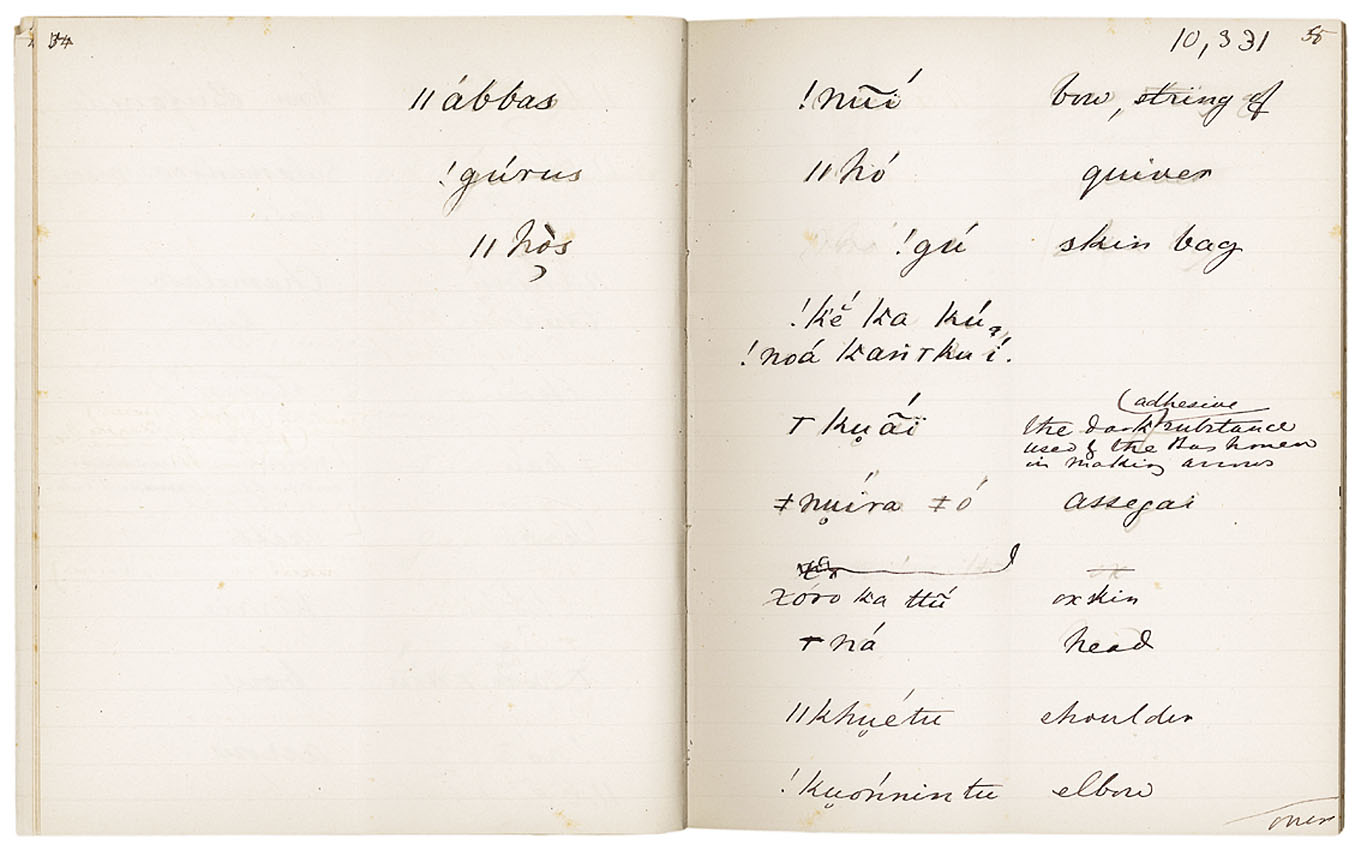 34
ǁábbas
!gúrus
ǁhò̧s
10,331 35
!nu͠í bow, string of
ǁhó quiver
!gú skin bag
!kĕ́ ka kúą,
!noá kań ꞇkuí.
ꞇ kụā͂́i the dark (adhesive substance
used by the Bushmen
in making arrows
ǂnụíra ǂó assegai
ox
χóro ka ttū́ oxskin
ꞇ ná head
ǁkhụétu shoulder
!kụońnintu elbow
over